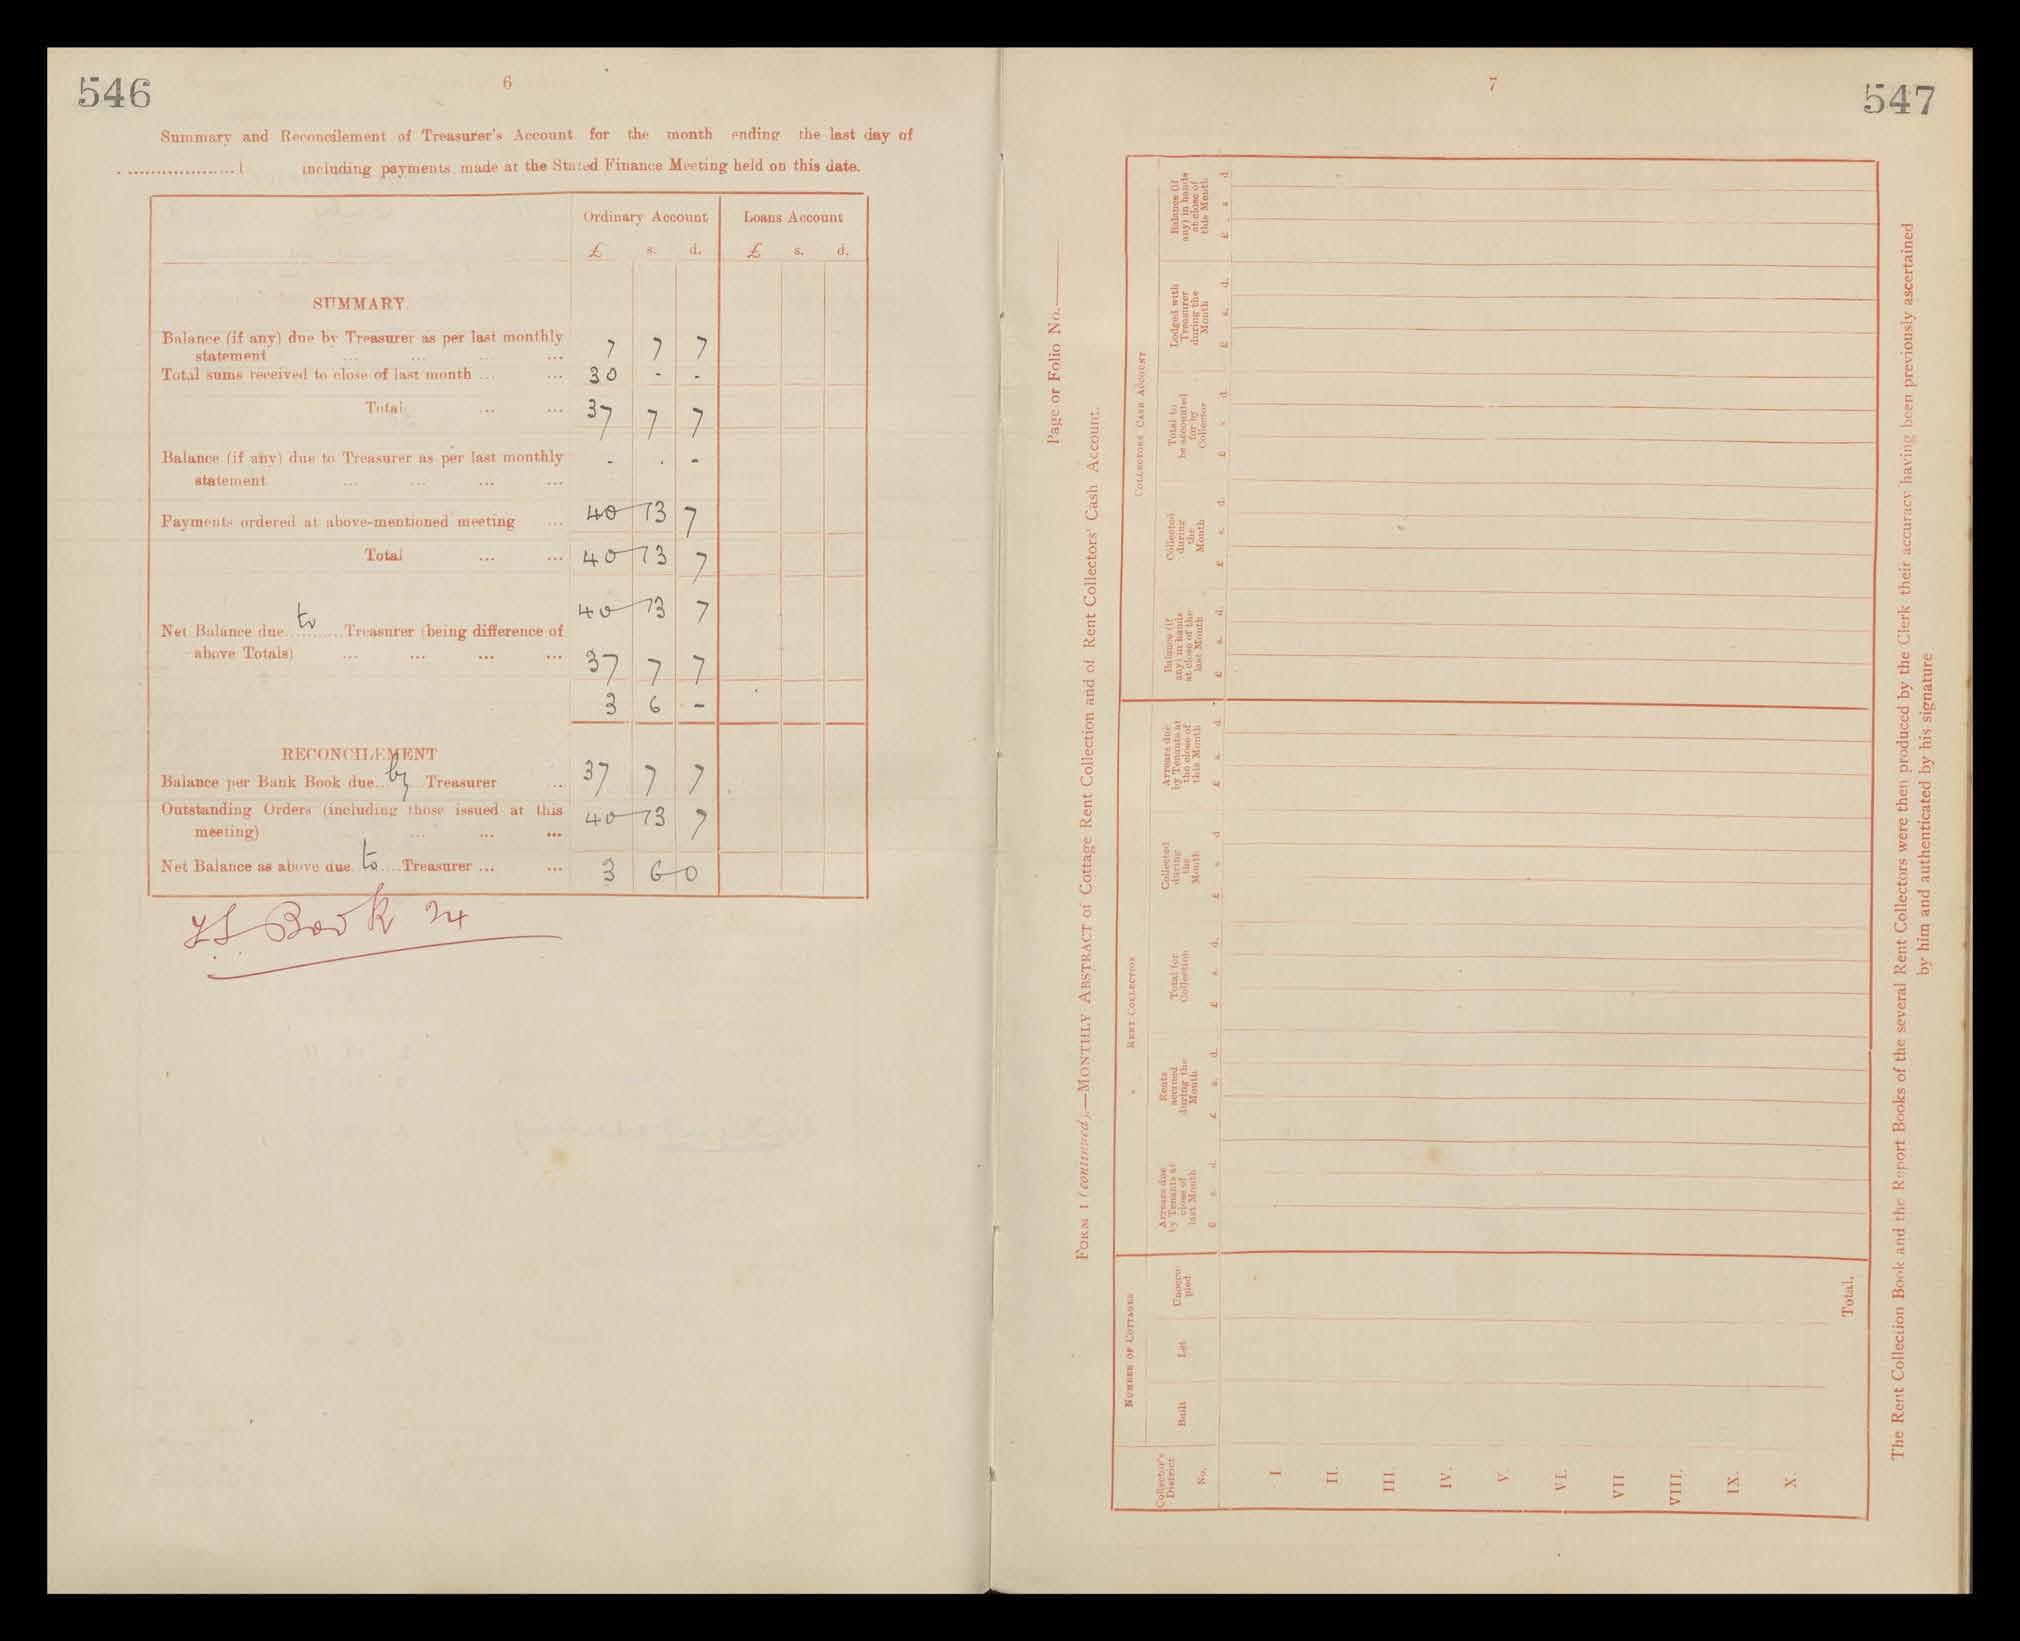 546
6
Summary and Reconcilement of Treasurer's Account for the month ending the last day of
....................1 including payments made at the Stated Finance Meeting held on this date.
Ordinary Account Loans Account
£ s. d. £ s. d.
SUMMARY
Balance (if any) due by Treasurer as per last monthly
statement ... ... ... ... 7 7 7
Total sums received to close of last month ... ... 30 - -
Total ... ... 37 7 7
Balance (if any) due to Treasurer as per last monthly - - -
statement ... ... ... ...
Payments ordered at above-mentioned meeting ... 40 13 7
Total ... ... 40 13 7
40 13 7
Net Balance due to Treasurer (being difference of
above Totals) ... ... ... ... 37 7 7
3 6 -
RECONCILEMENT
Balance per Bank Book due by Treasurer ... 37 7 7
Outstanding Orders (including those issued at this
meeting) ... ... ... 40 13 7
Net Balance as above due to Treasurer ... ... 3 6 0
Book 24
7
547
Page or Folio No.
FORM 1 (continued).—MONTHLY ABSTRACT of Cottage Rent Collection and of Rent Collectors' Cash Account.
NUMBER OF COTTAGES RENT COLLECTION COLLECTORS CASH ACCOUNT
Collector's District No.
Built
Let
Unoccupied
Arrears due by Tenants at close of last Month £ s. d.
Rents accrued during the Month £ s. d.
Total for Collection £ s. d.
Collected during the Month £ s. d.
Arrears due by Tenants at the close of this Month £ s. d.
Balance (if any) in hands at close of the last Month £ s. d.
Collected during the Month £ s. d.
Total to be accounted for by Collector £ s. d.
Lodged with Treasurer during the Month £ s. d.
Balance (if any) in hands at close of this Month £ s. d.
I.
II.
III.
IV.
V.
VI.
VII.
VIII.
IX.
X.
Total,
The Rent Collection Book and the Report Books of the several Rent Collectors were then produced by the Clerk their accuracy having been previously ascertained
by him and authenticated by his signature